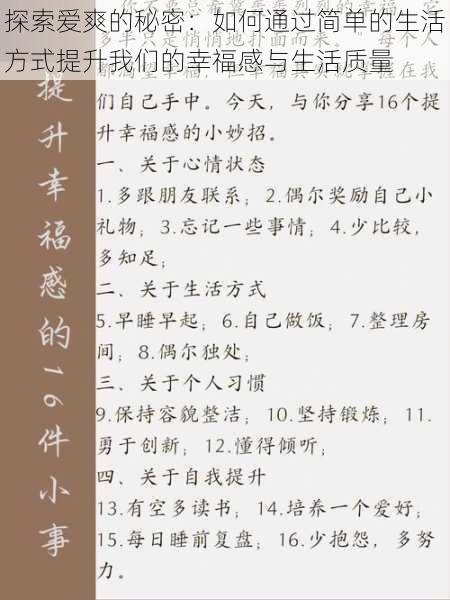 探索爱爽的秘密：如何通过简单的生活
方式提升我们的幸福感与生活质量
提升幸福感的16件小事
们自己手中。今天，与你分享16个提
升幸福感的小妙招。
一、关于心情状态
1.多跟朋友联系；2.偶尔奖励自己小
礼物；3.忘记一些事情；4.少比较，
多知足；
二、关于生活方式
5.早睡早起；6.自己做饭；7.整理房
间；8.偶尔独处；
三、关于个人习惯
9.保持容貌整洁；10.坚持锻炼；11.
勇于创新；12.懂得倾听；
四、关于自我提升
13.有空多读书；14.培养一个爱好；
15.每日睡前复盘；16.少抱怨，多努
力。